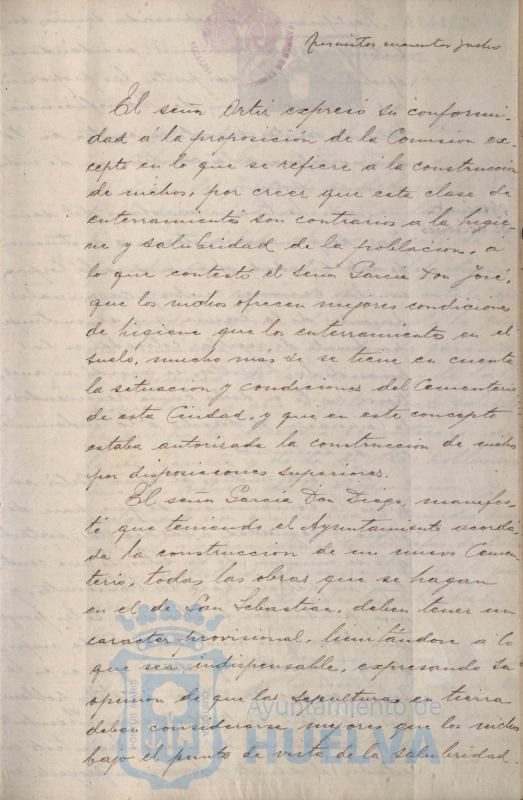 El señor Ortiz expresó su conformi-
dad á la proposición de la Comision ex-
cepto en lo que se refiere á la construccion
de nichos, por creer que esta clase de
enterramientos son contrarios á la higie-
ne y salubridad de la poblacion, a
lo que contestó el Señor García Don José,
que los nichos ofrecen mejores condiciones
de higiene que los enterramientos en el
suelo, mucho más si se tiene en cuenta
la situacion y condiciones del Cementerio
de esta Ciudad, y que en este concepto
estaba autorizada la construccion de nichos
por disposiciones superiores.
El señor García Don Diego, manifes-
tó que teniendo el Ayuntamiento acorda-
da la construccion de un nuevo Cemen-
terio, todas las obras que se hagan
en el de San Sebastian, deben tener un
caracter provisional, limitándose a lo
que sea indispensable, expresando su
opinion de que las sepulturas en tierra
deben considerarse mejores que los nichos
bajo el punto de vista de la salubridad.
Ayuntamiento de
HUELVA